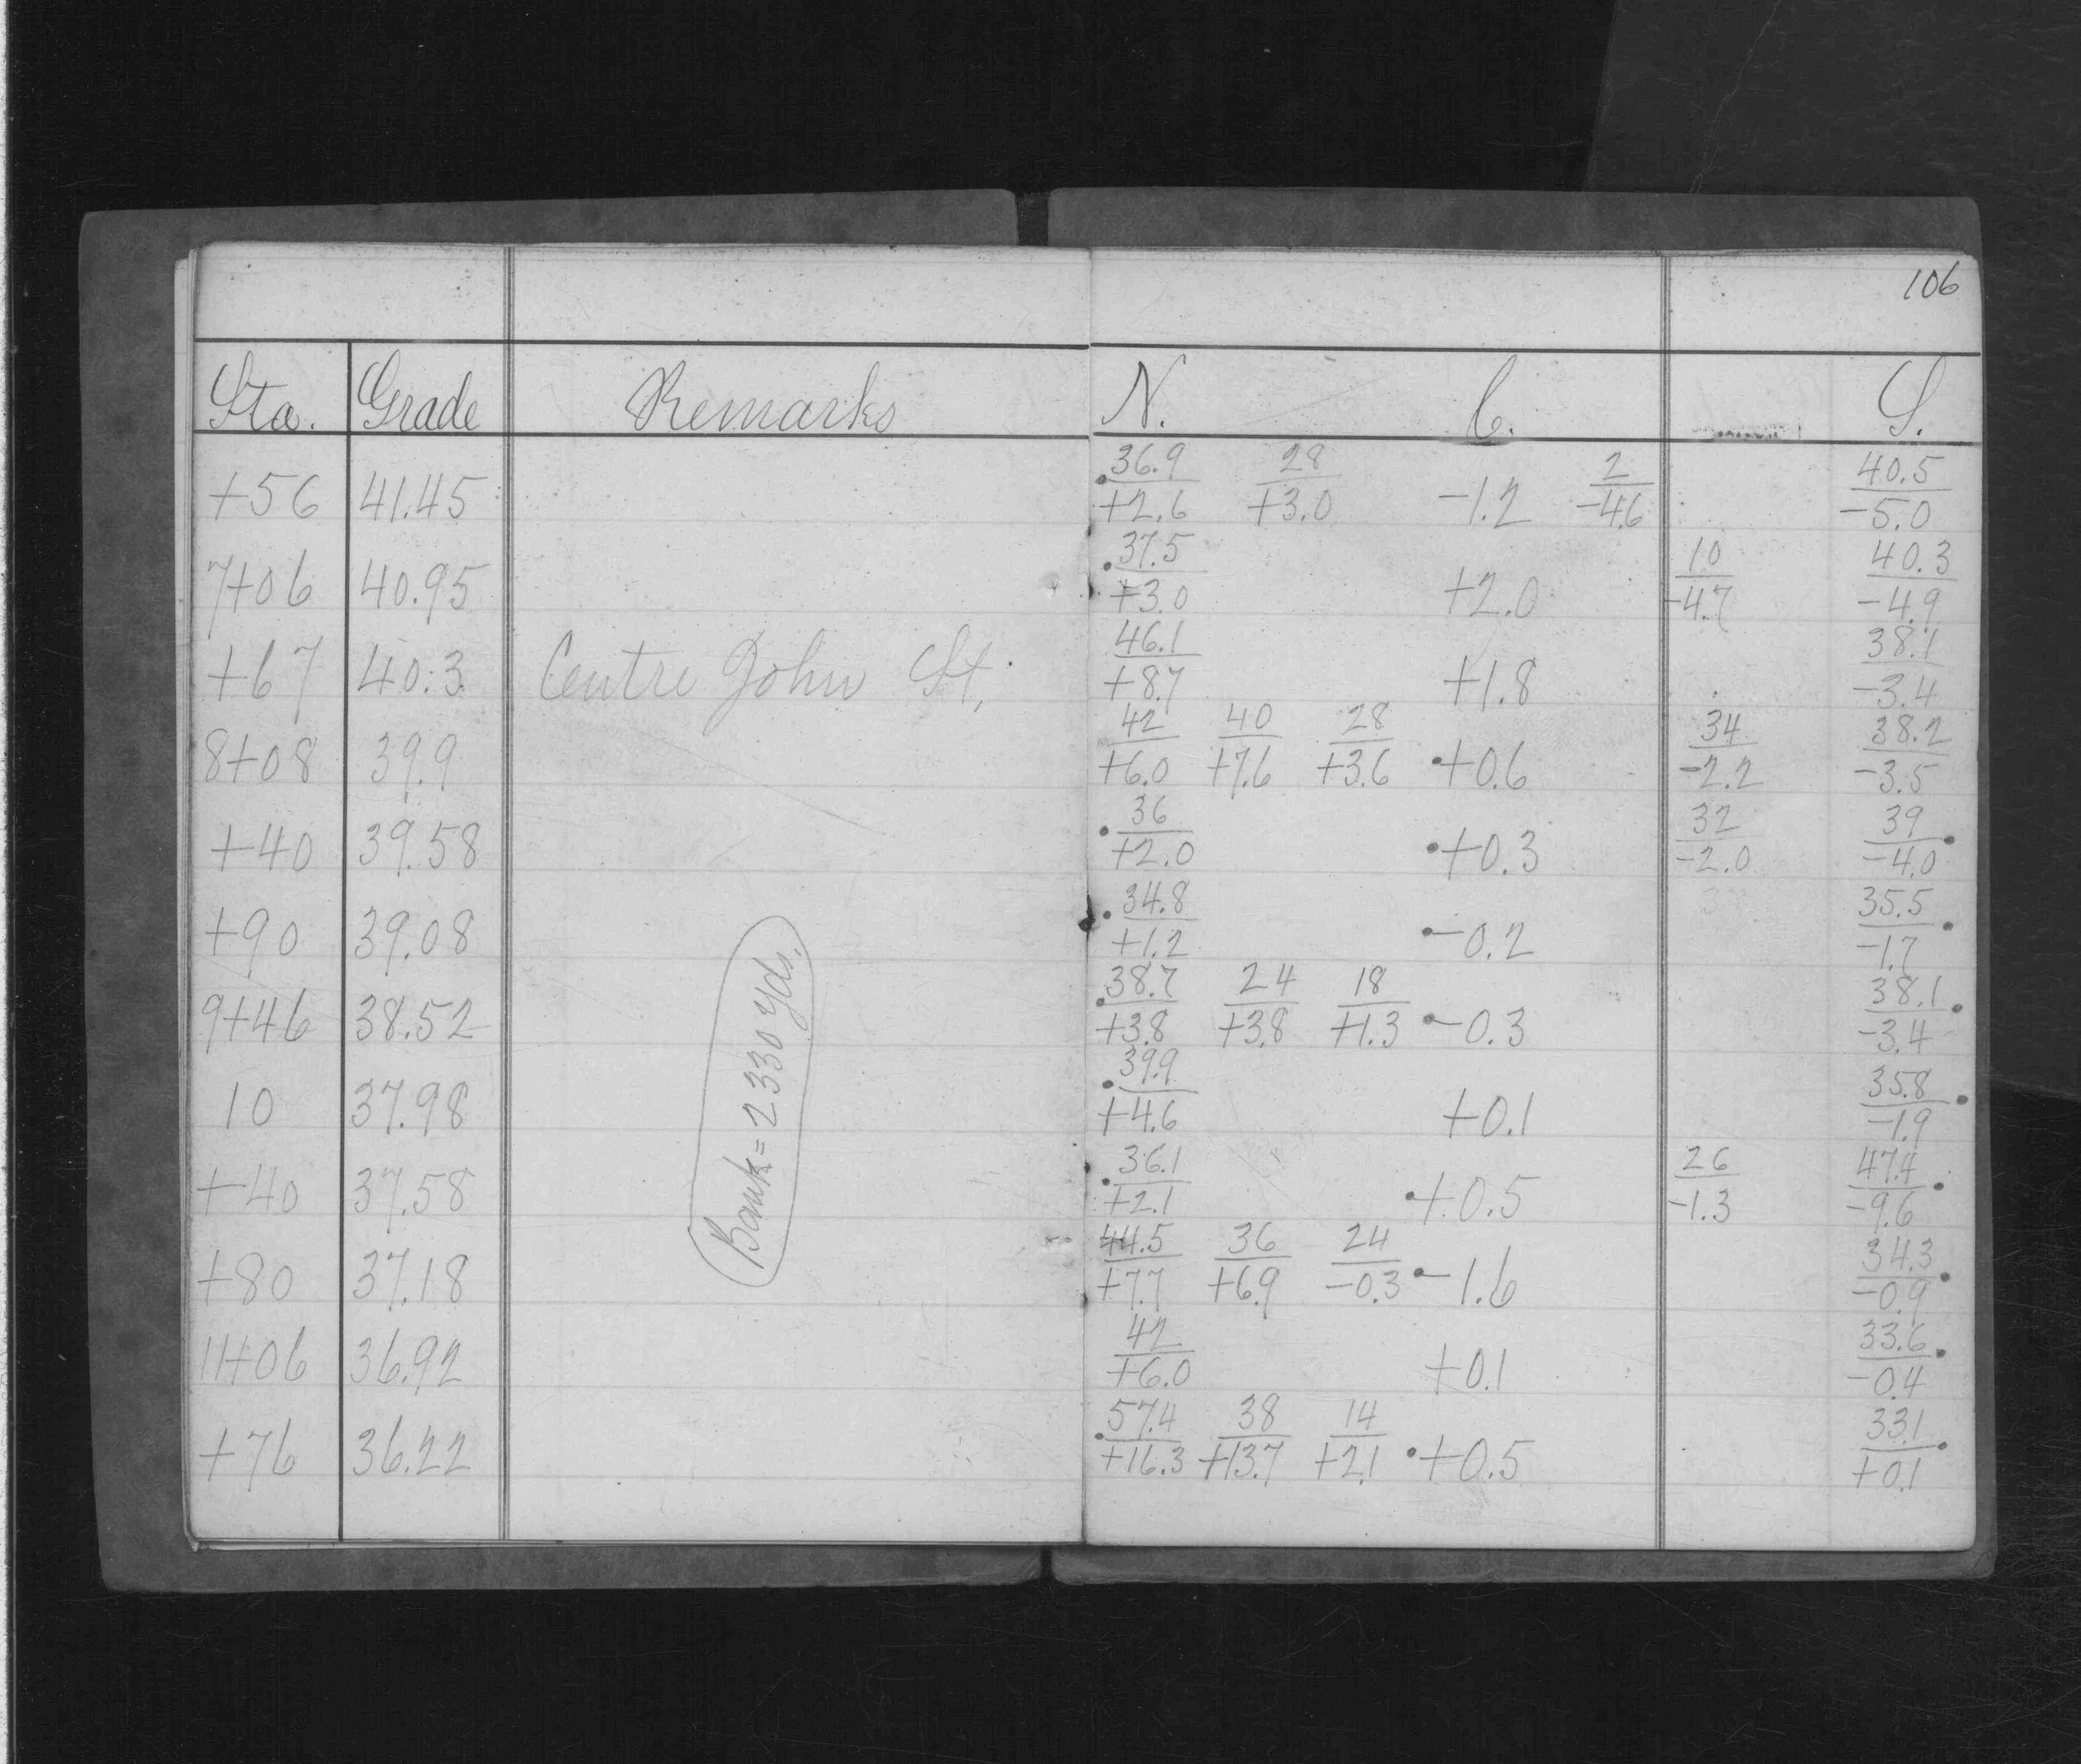 106
Sta. Grade Remarks N. C. S.
+56 41.45 36.9/+2.6 28/+3.0 -1.2 2/-4.6 40.5/-5.0
7+06 40.95 37.5/+3.0 +2.0 10/-4.7 40.3/-4.9
+67 40.3 Centre John St. 46.1/+8.7 +1.8 38.1/-3.4
8+08 39.9 42/+6.0 40/+7.6 28/+3.6 +0.6 34/-2.2 38.2/-3.5
+40 39.58 36/+2.0 +0.3 32/-2.0 39/-4.0
+90 39.08 34.8/+1.2 -0.2 35.5/-1.7
9+46 38.52 38.7/+3.8 24/+3.8 18/+1.3 -0.3 38.1/-3.4
10 37.98 39.9/+4.6 +0.1 35.8/-1.9
+40 37.58 36.1/+2.1 +0.5 26/-1.3 47.4/-9.6
+80 37.18 44.5/+7.7 36/+6.9 24/-0.3 -1.6 34.3/-0.9
11+06 36.92 42/+6.0 +0.1 33.6/-0.4
+76 36.22 57.4/+16.3 38/+13.7 14/+2.1 +0.5 33.1/+0.1
Bank = 2330 yds.